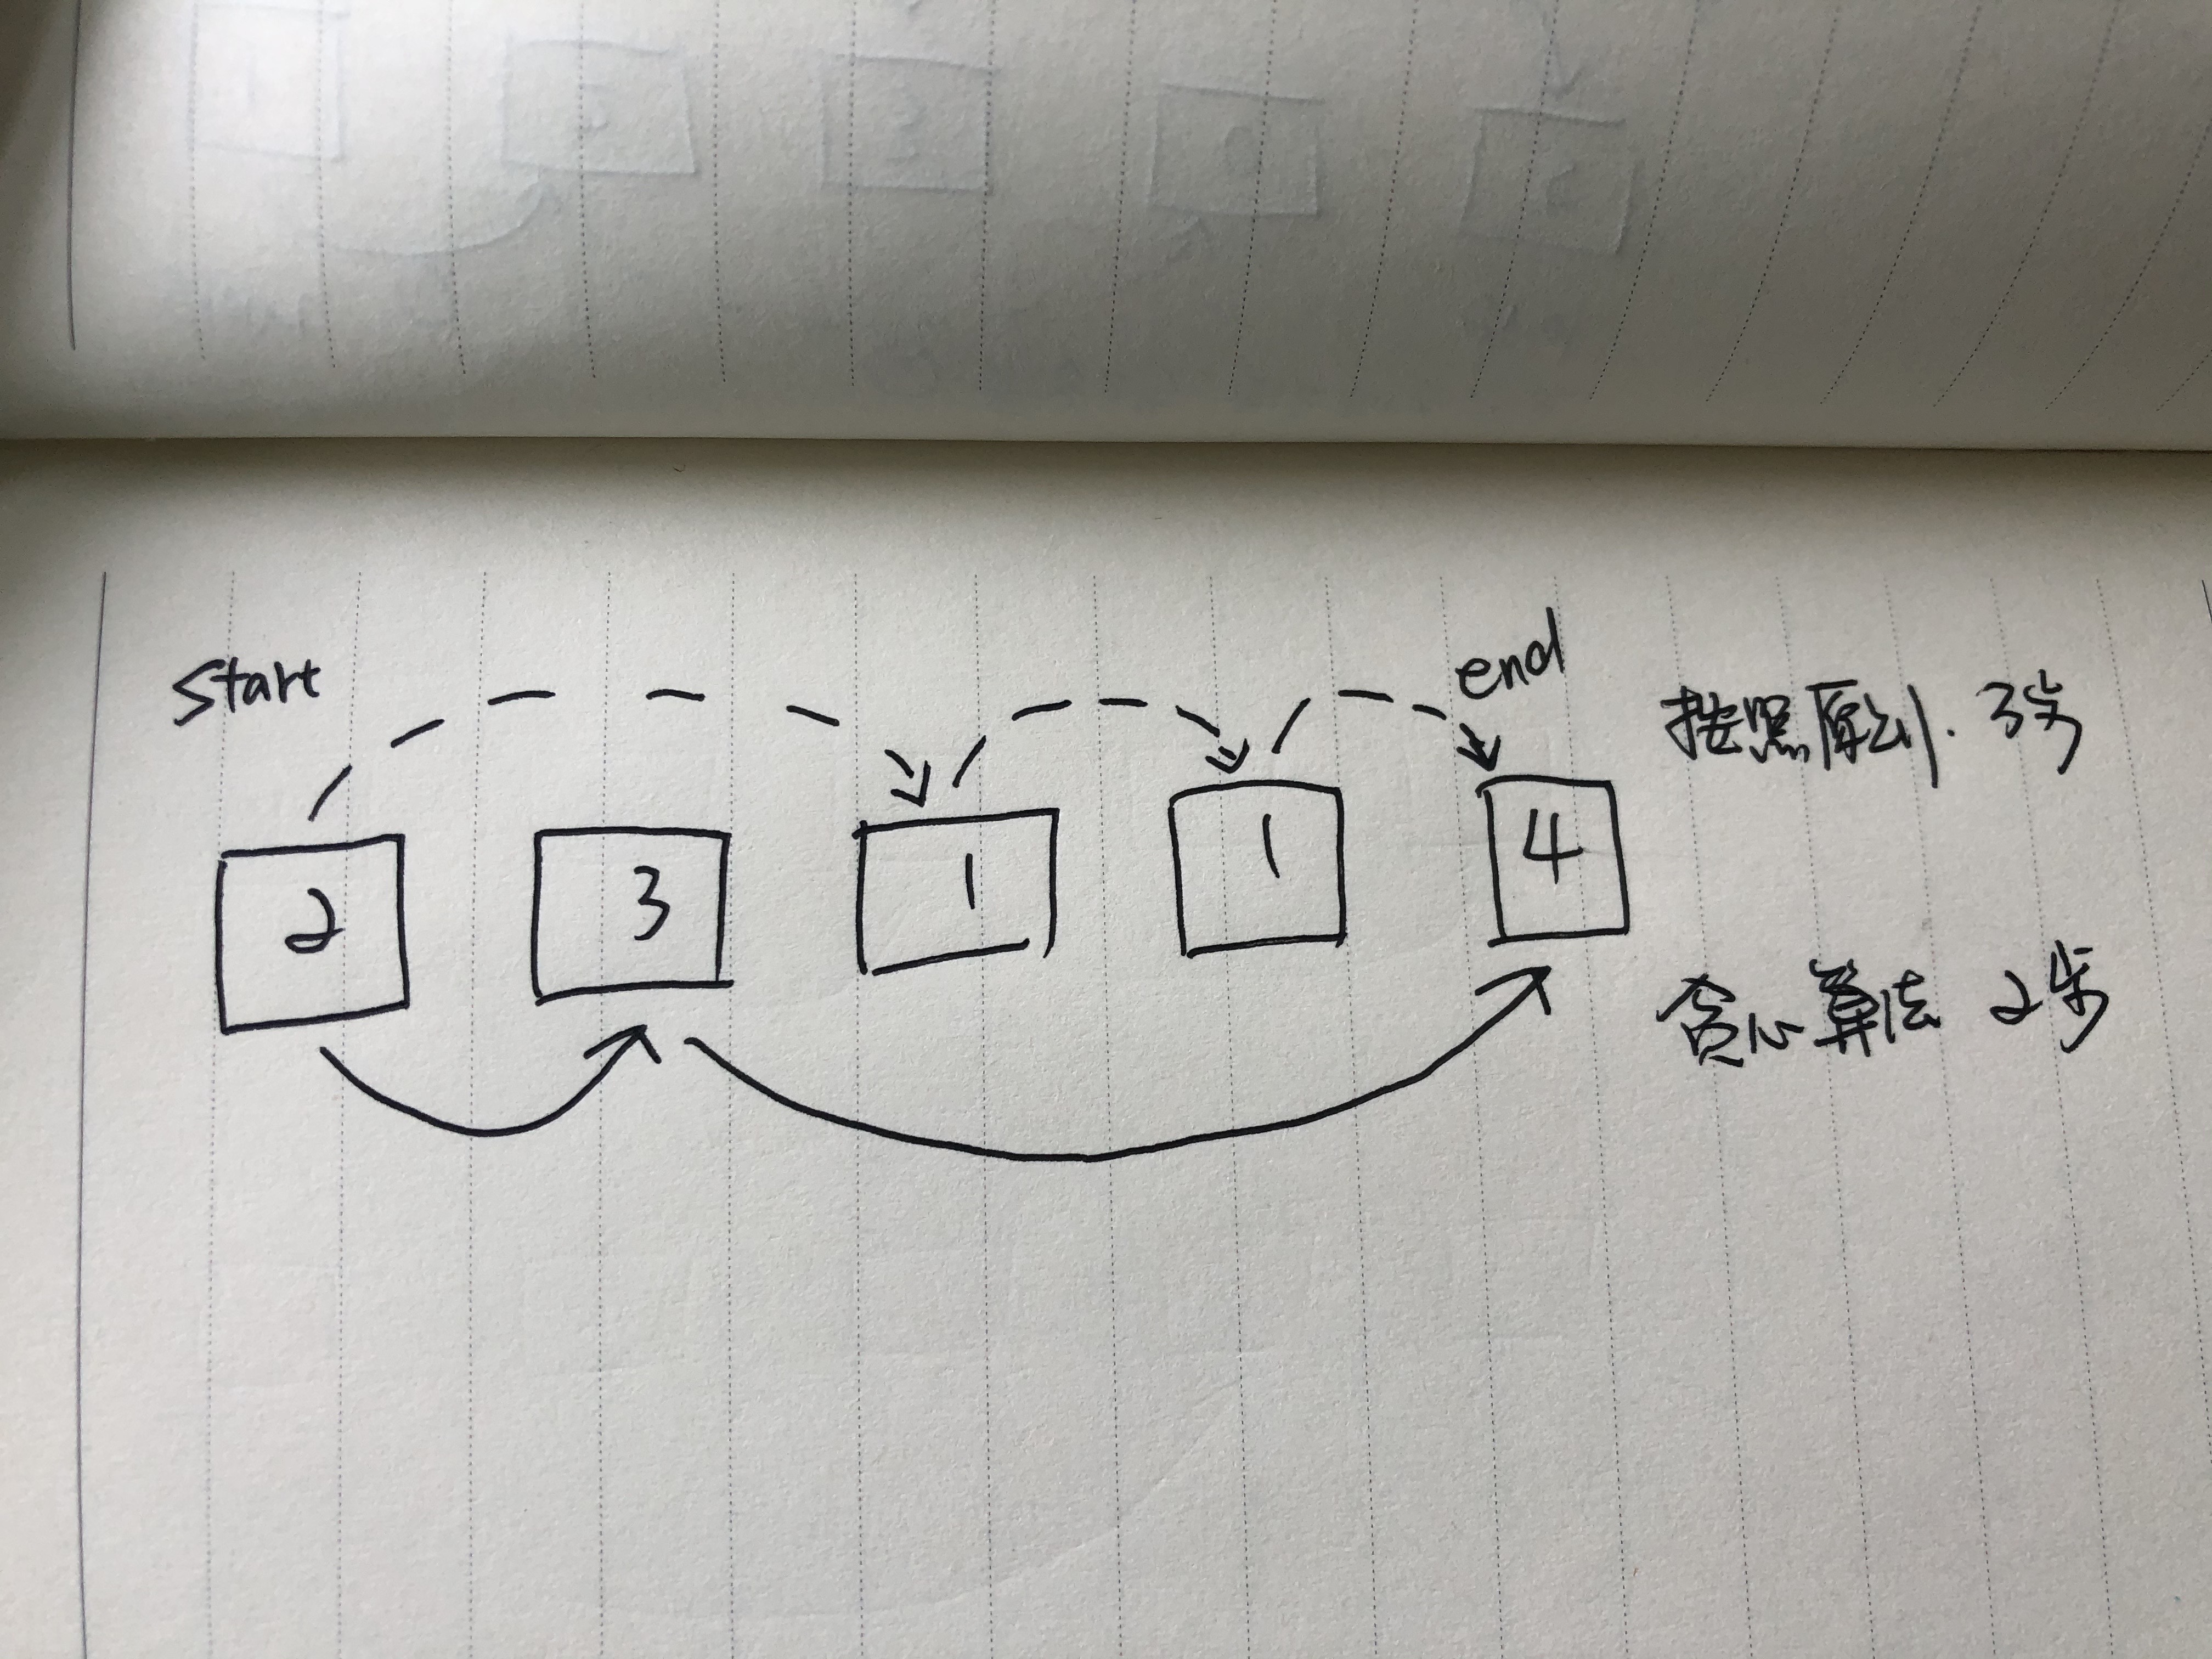 start
end
按照原计 3步
2 3 1 1 4
贪心算法 2步